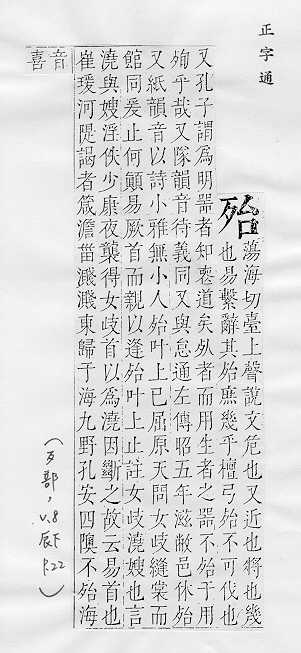 正字通
殆
蕩海切臺上聲說文危也又近也將也幾
也易繫辭其殆庶幾乎檀弓殆不可伐也
又孔子謂爲明器者知喪道矣死者而用生者之器不殆于用
殉乎哉又隊韻音待義同又與怠通左傳昭五年滋敝邑休殆
又紙韻音以詩小雅無小人殆叶上已屈原天問女歧縫裳而
館同爰止何顛易厥首而親以逢殆叶上止註女歧澆嫂也言
澆與嫂淫佚少康夜襲得女歧首以爲澆因斷之故云易首也
崔瑗河隄謁者箴澹菑濺濺東歸于海九野孔安四隩不殆海
音
喜
(歹部, v.8 辰下 p.22)